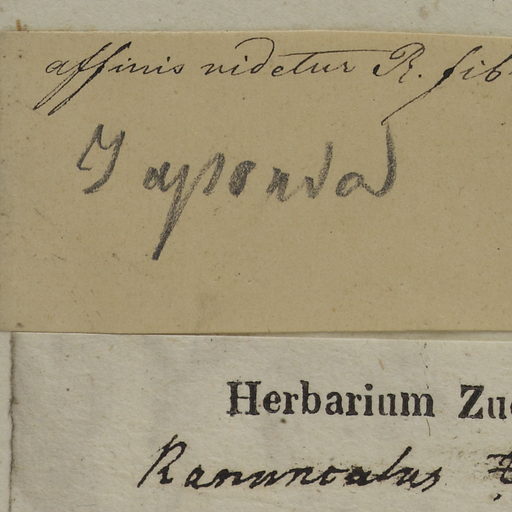 affinis videtur R. sib
Japonia
Herbarium Zuc
Ranunculus